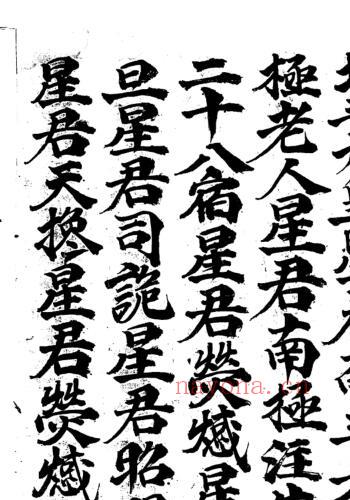 極老人星君南極注
二十八宿星君熒憾星
旦星君司詭星君昭
星君天搀星君熒憾
nayona.cn